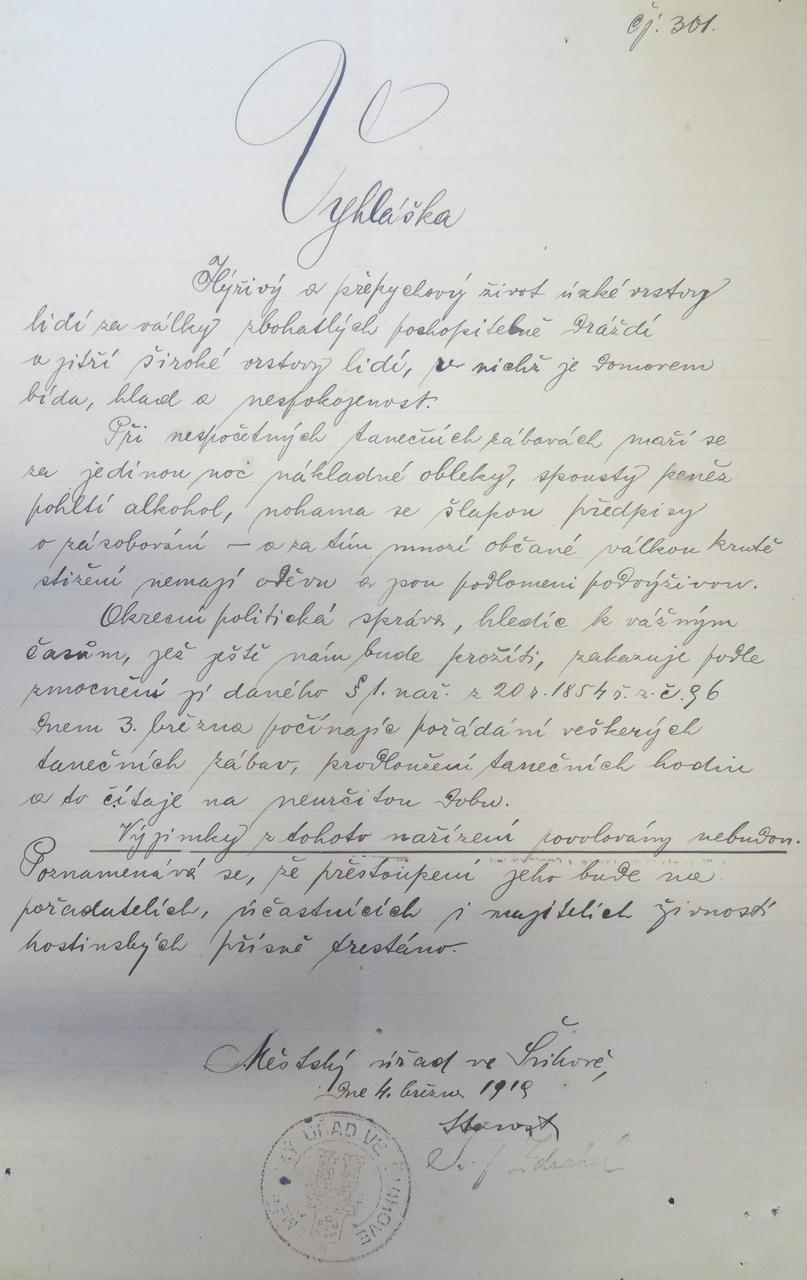 čj. 301.
Vyhláška
Hýřivý a přepychový život úzké vrstvy
lidí za války zbohatlých pochopitelně dráždí
a jitří široké vrstvy lidí, v nichž je domovem
bída, hlad a nespokojenost.
Při nespočetných tanečních zábavách maří se
za jedinou noc nákladné obleky, spousty peněz
pohltí alkohol, nohama se šlapou předpisy
o zásobování – a za tím mnozí občané válkou krutě
stižení nemají oděvu a jsou podlomeni podvýživou.
Okresní politická správa, hledíc k vážným
časům, jež ještě nám bude prožíti, zakazuje podle
zmocnění jí daného § 1. nař. z 20 r. 1854 ř. z. č. 96
dnem 3. března počínajíc pořádání veškerých
tanečních zábav, prodloužení tanečních hodin
a to čítaje na neurčitou dobu.
Výjimky z tohoto nařízení povolovány nebudou.
Poznamenává se, že přestoupení jeho bude na
pořadatelích, účastnících i majitelích živností
hostinských přísně trestáno.
Městský úřad ve Švihově,
dne 4. března 1919
Starosta
MĚSTSKÝ ÚŘAD VE ŠVIHOVĚ